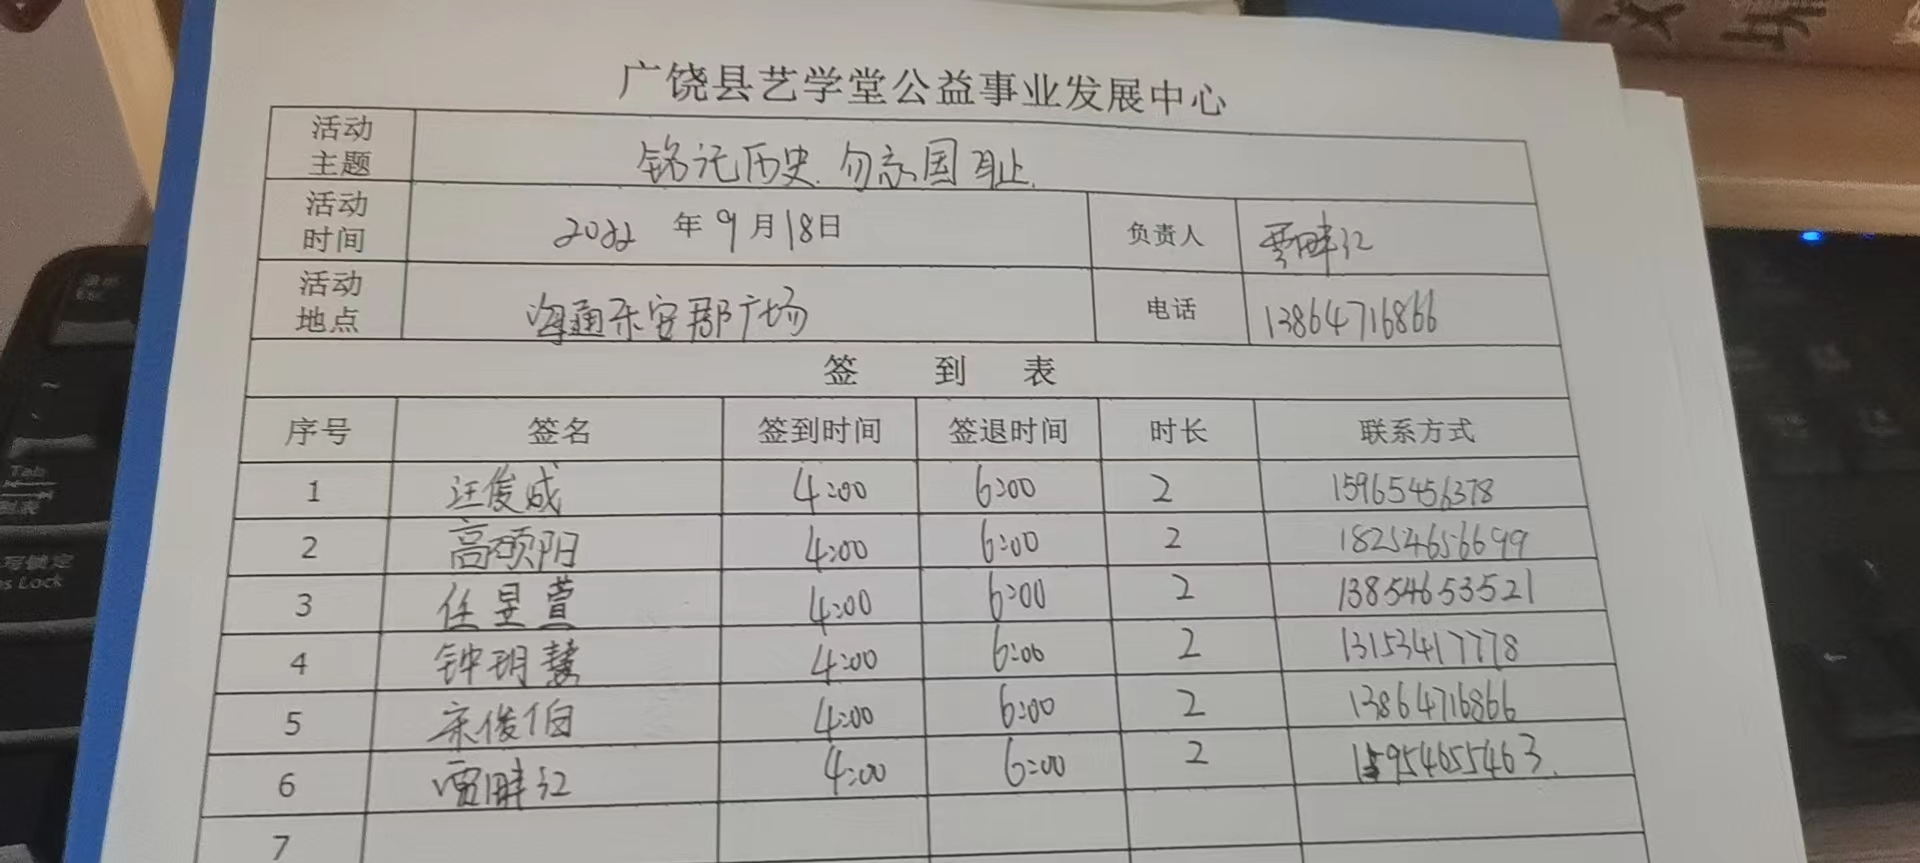 广饶县艺学堂公益事业发展中心
活动主题 铭记历史.勿忘国耻.
活动时间 2022 年 9 月 18 日 负责人 畔江
活动地点 海通东宫郡广场 电话 13864716866
签 到 表
序号 签名 签到时间 签退时间 时长 联系方式
1 汪俊成 4:00 6:00 2 15965456378
2 高硕阳 4:00 6:00 2 18254656699
3 任昱萱 4:00 6:00 2 13854653521
4 钟玥慧 4:00 6:00 2 13153417778
5 宋俊伯 4:00 6:00 2 13864716866
6 畔江 4:00 6:00 2 15954655463.
7
Tab